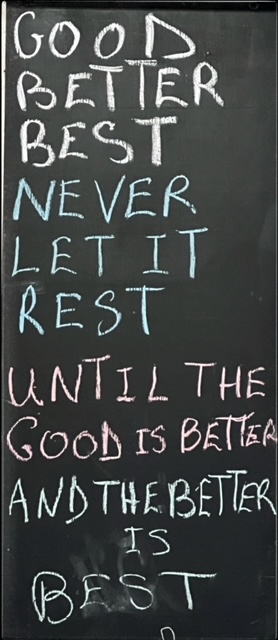 GOOD
BETTER
BEST
NEVER
LET IT
REST
UNTIL THE
GOOD IS BETTER
AND THE BETTER
IS
BEST